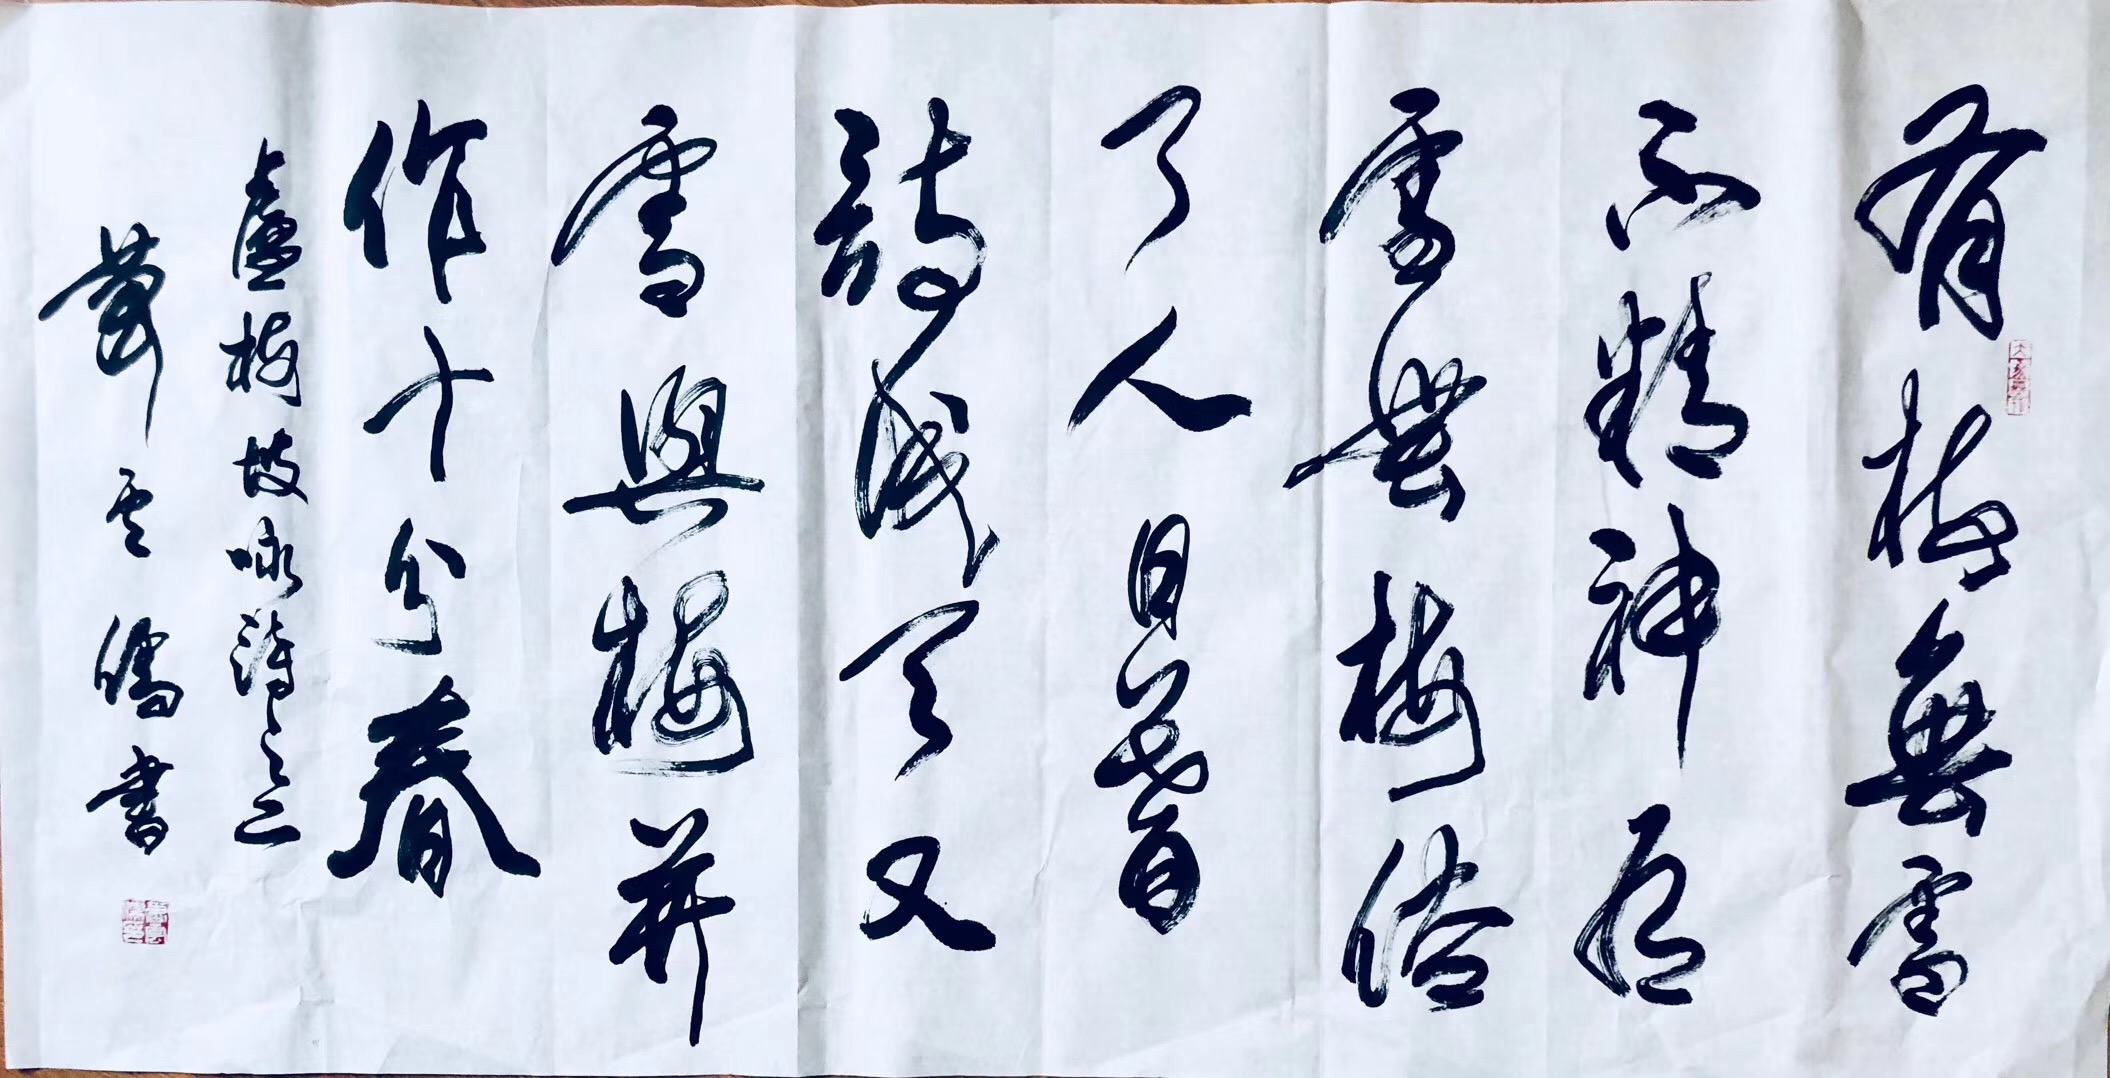 有梅無雪
不精神有
雪無梅俗
了人日暮
詩成天又
雪與梅并
作十分春
盧梅坡咏詩之二
云儒書